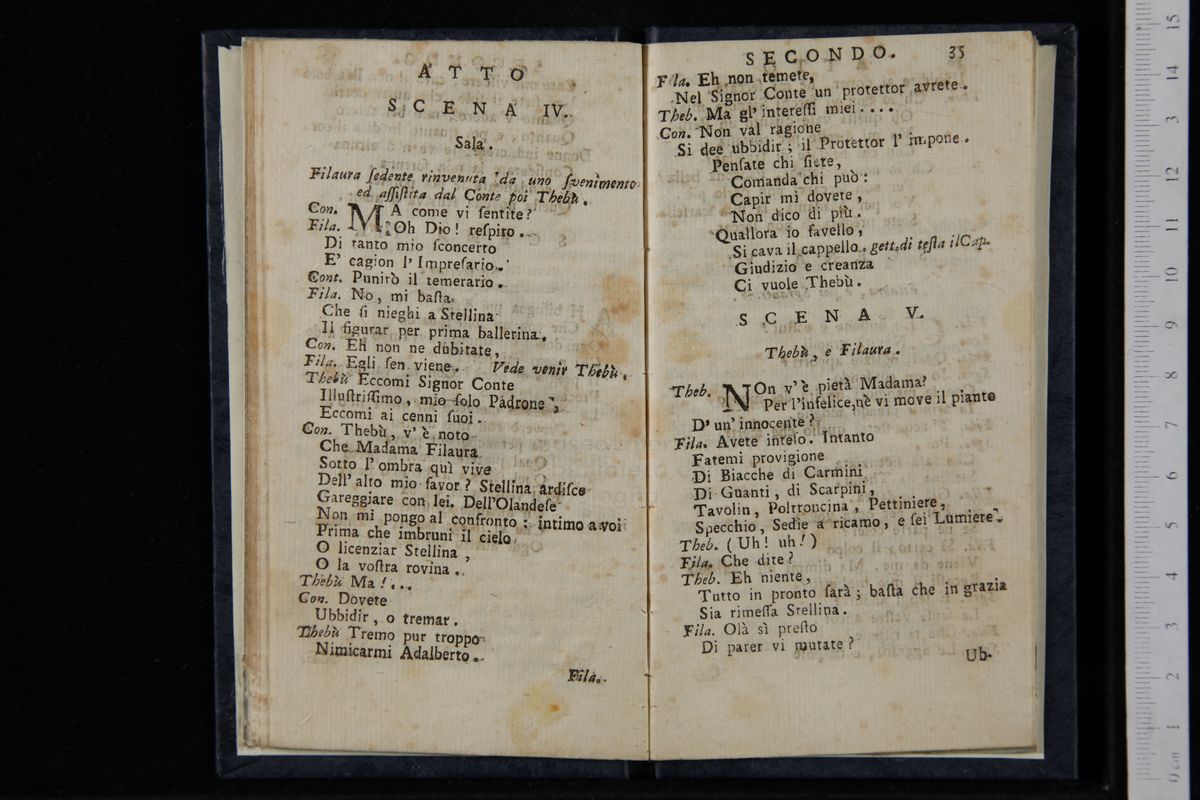 ATTO
SCENA IV.
Sala.
Filaura ſedente rinvenuta da uno ſvenimento
ed aſſiſtita dal Conte poi Thebù.
Con. MA come vi ſentite?
Fila. Oh Dio! reſpiro.
Di tanto mio ſconcerto
E' cagion l'Impreſario.
Cont. Punirò il temerario.
Fila. No, mi baſta
Che ſi nieghi a Stellina
Il figurar per prima ballerina.
Con. Eh non ne dubitate,
Fila. Egli ſen viene. Vede venir Thebù.
Thebù Eccomi Signor Conte
Illuſtriſſimo, mio ſolo Padrone,
Eccomi ai cenni ſuoi.
Con. Thebù, v'è noto
Che Madama Filaura
Sotto l'ombra quì vive
Dell'alto mio favor? Stellina ardiſce
Gareggiare con lei. Dell'Olandeſe
Non mi pongo al confronto: intimo a voi
Prima che imbruni il cielo
O licenziar Stellina,
O la voſtra rovina.
Thebù Ma!...
Con. Dovete
Ubbidir, o tremar.
Thebù Tremo pur troppo
Nimicarmi Adalberto.
Fila.
SECONDO. 35
Fila. Eh non temete,
Nel Signor Conte un protettor avrete.
Theb. Ma gl'intereſſi miei....
Con. Non val ragione
Si dee ubbidir; il Protettor l'impone.
Penſate chi ſiete,
Comanda chi può:
Capir mi dovete,
Non dico di più.
Quallora io favello,
Si cava il cappello. gett. di teſta il Cap.
Giudizio e creanza
Ci vuole Thebù.
SCENA V.
Thebù, e Filaura.
Theb. NOn v'è pietà Madama?
Per l'infelice, nè vi move il pianto
D'un'innocente?
Fila. Avete inteſo. Intanto
Fatemi provigione
Di Biacche di Carmini
Di Guanti, di Scarpini,
Tavolin, Poltroncina, Pettiniere,
Specchio, Sedie a ricamo, e ſei Lumiere.
Theb. (Uh! uh!)
Fila. Che dite?
Theb. Eh niente,
Tutto in pronto ſarà; baſta che in grazia
Sia rimeſſa Stellina.
Fila. Olà sì preſto
Di parer vi mutate?
Ub-
15
14
3
12
11
10
9
8
7
6
5
4
3
2
1
0 cm